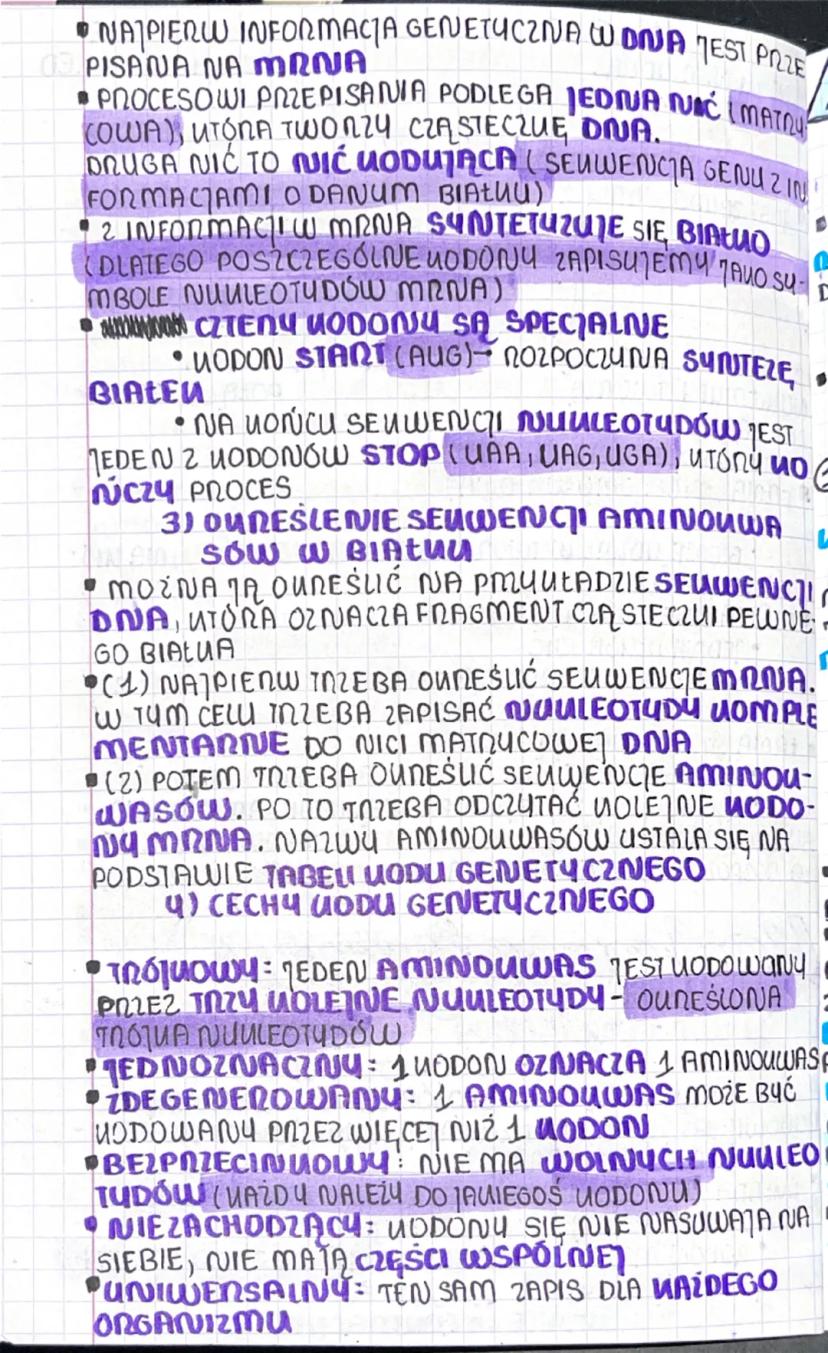 • NAJPIERW INFORMACJA GENETYCZNA W DNA JEST PRZE
PISANA NA MRNA
• PROCESOWI PRZEPISANIA PODLEGA JEDNA NIĆ (MATRY
COWA), KTÓRA TWORZY CZĄSTECZKĘ DNA.
DRUGA NIĆ TO NIĆ KODUJĄCA (SEKWENCJA GENU Z IN
FORMACJAMI O DANYM BIAŁKU)
• Z INFORMACJI W MRNA SYNTETYZUJE SIĘ BIAŁKO
(DLATEGO POSZCZEGÓLNE KODONY ZAPISUJEMY JAKO SY-
MBOLE NUKLEOTYDÓW MRNA)
• CZTERY KODONY SĄ SPECJALNE
• KODON START (AUG) → ROZPOCZYNA SYNTEZĘ
BIAŁEK
• NA KOŃCU SEKWENCJI NUKLEOTYDÓW JEST
JEDEN Z KODONÓW STOP (UAA, UAG, UGA), KTÓRY KO
ŃCZY PROCES
3) OKREŚLENIE SEKWENCJI AMINOKWA
SÓW W BIAŁKU
• MOŻNA JĄ OKREŚLIĆ NA PRZYKŁADZIE SEKWENCJI
DNA, KTÓRA OZNACZA FRAGMENT CZĄSTECZKI PEWNE
GO BIAŁKA
• (1) NAJPIERW TRZEBA OKREŚLIĆ SEKWENCJE MRNA.
W TYM CELU TRZEBA ZAPISAĆ NUKLEOTYDY KOMPLE
MENTARNE DO NICI MATRYCOWEJ DNA
• (2) POTEM TRZEBA OKREŚLIĆ SEKWENCJE AMINOK-
WASÓW. PO TO TRZEBA ODCZYTAĆ KOLEJNE KODO-
NY MRNA. NAZWY AMINOKWASÓW USTALA SIĘ NA
PODSTAWIE TABELI KODU GENETYCZNEGO
4) CECHY KODU GENETYCZNEGO
• TRÓJKOWY: JEDEN AMINOKWAS JEST KODOWANY
PRZEZ TRZY KOLEJNE NUKLEOTYDY - OKREŚLONA
TRÓJKA NUKLEOTYDÓW
• JEDNOZNACZNY: 1 KODON OZNACZA 1 AMINOKWAS
• ZDEGENEROWANY: 1 AMINOKWAS MOŻE BYĆ
KODOWANY PRZEZ WIĘCEJ NIŻ 1 KODON
• BEZPRZECINKOWY: NIE MA WOLNYCH NUKLEO
TYDÓW (KAŻDY NALEŻY DO JAKIEGOŚ KODONU)
• NIEZACHODZĄCY: KODONY SIĘ NIE NASUWAJA NA
SIEBIE, NIE MAJĄ CZĘŚCI WSPÓLNEJ
• UNIWERSALNY: TEN SAM ZAPIS DLA KAŻDEGO
ORGANIZMU